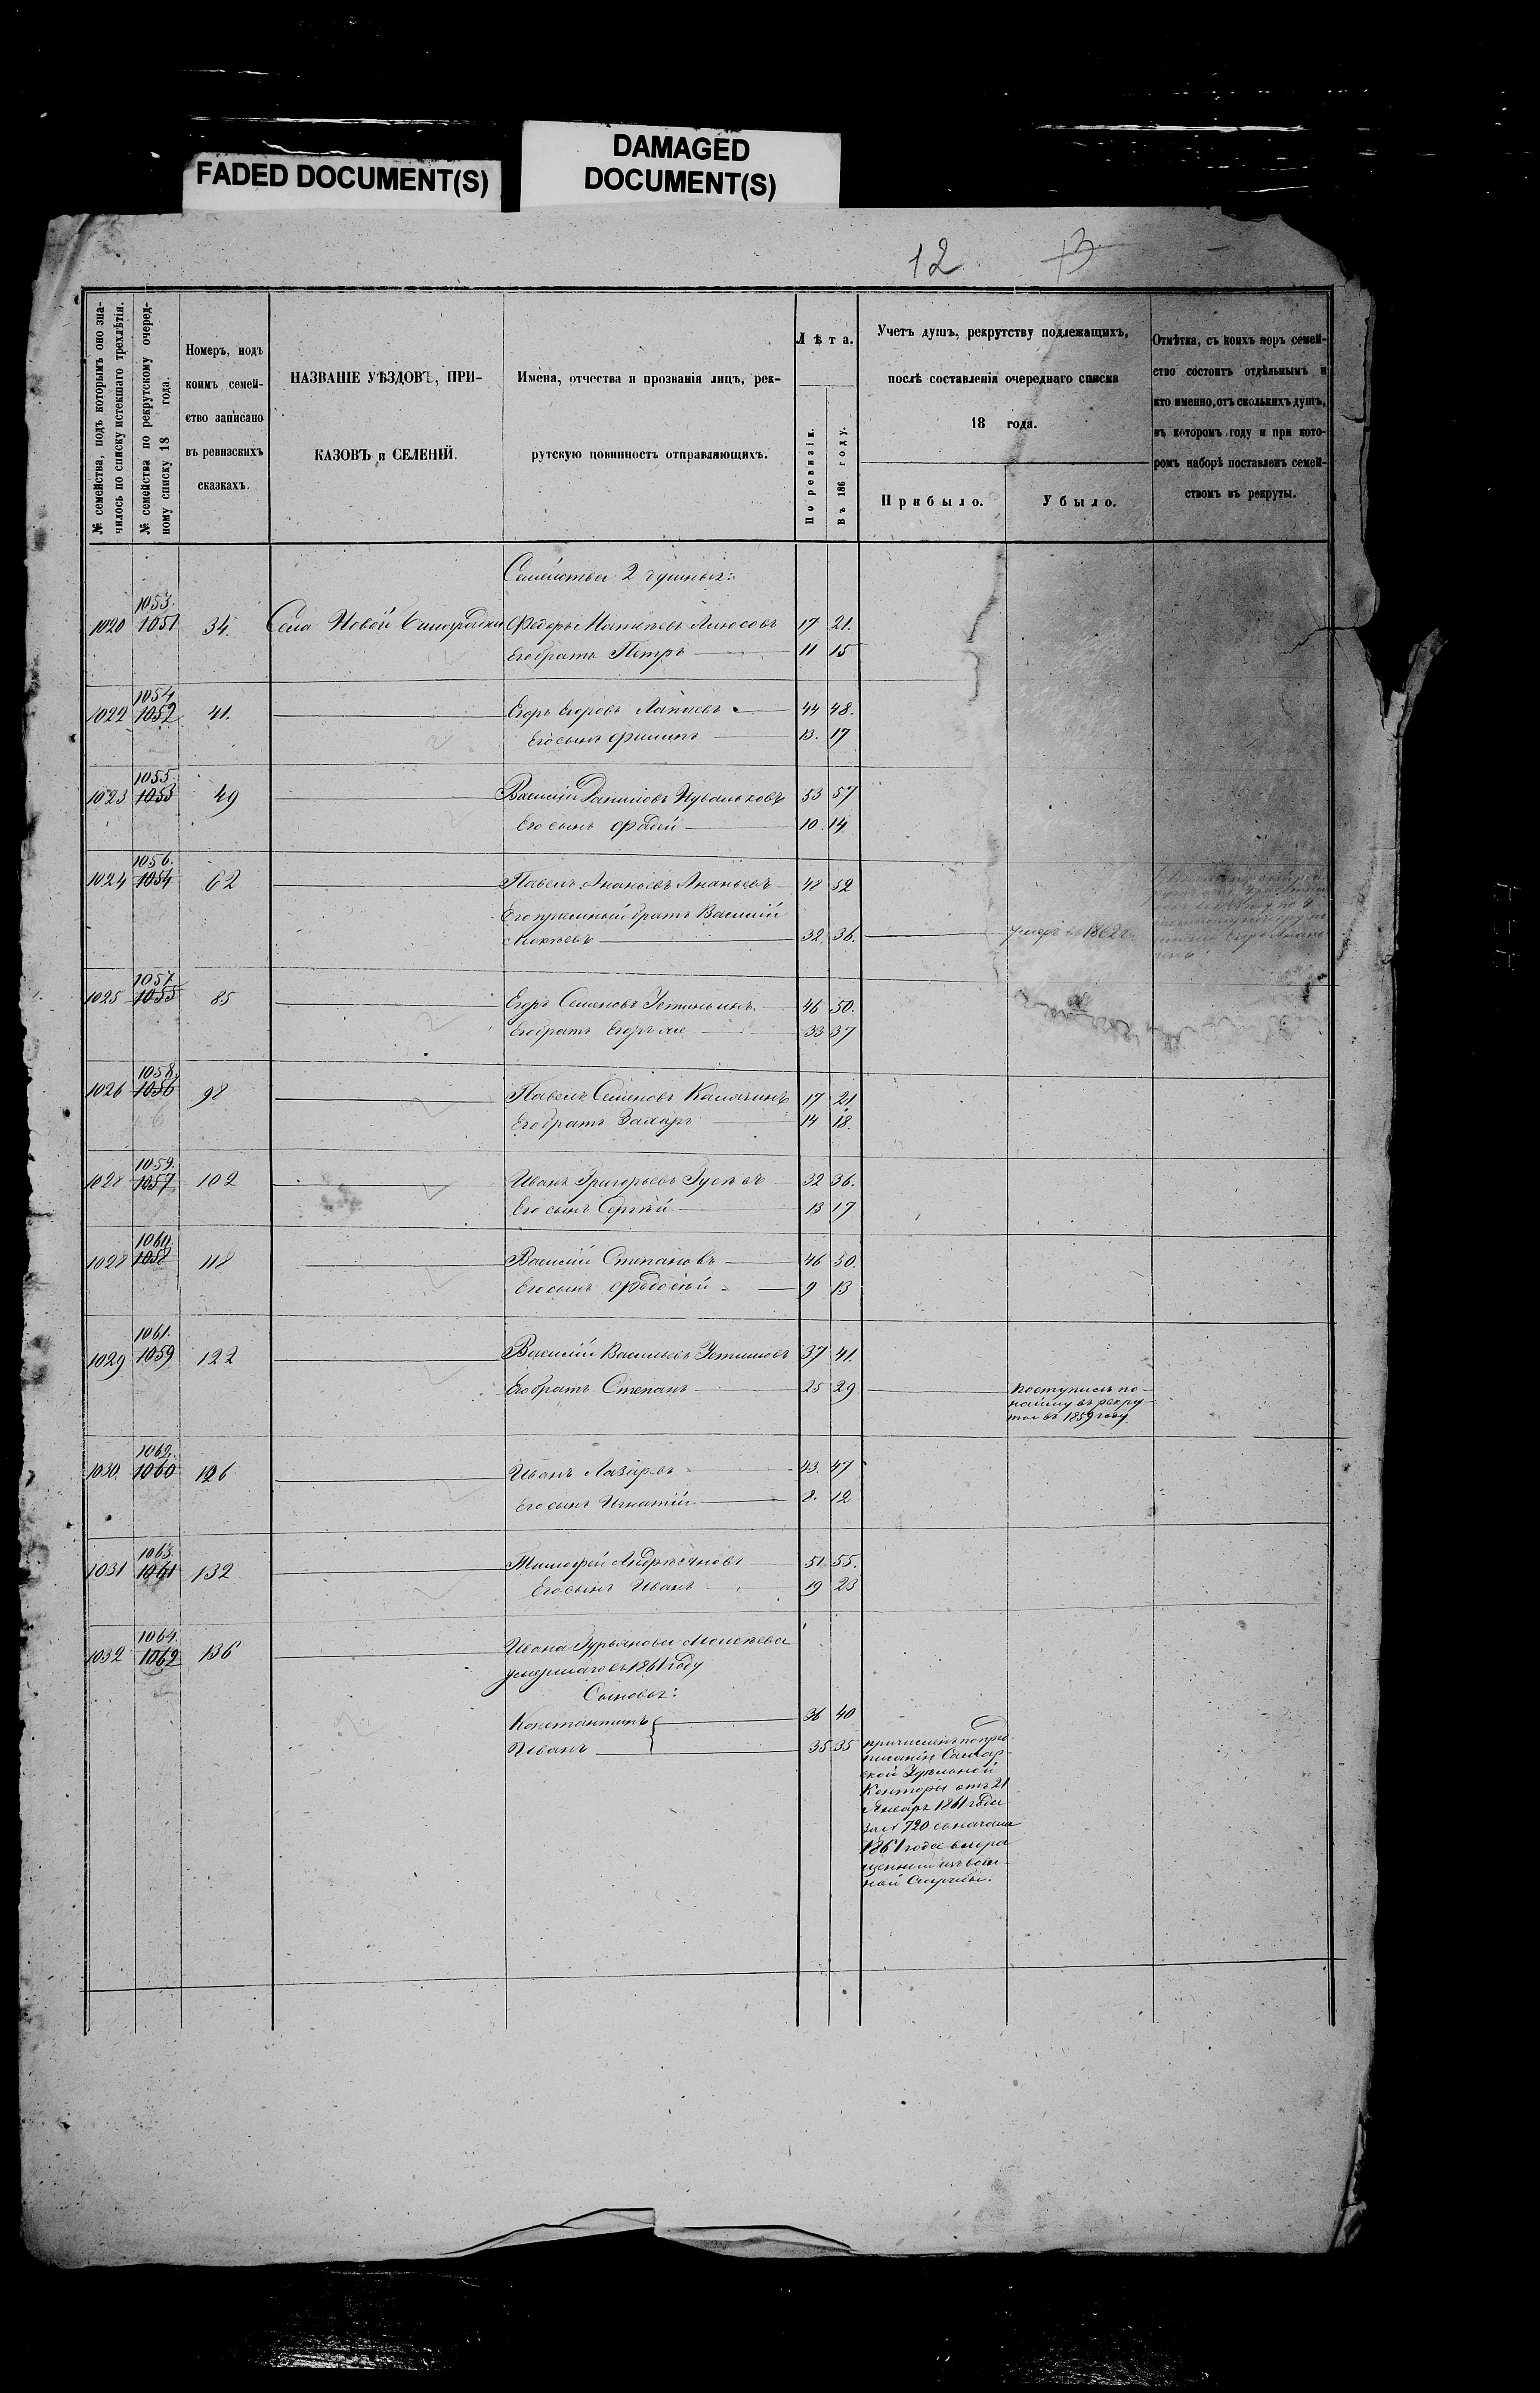 FADED DOCUMENT(S)
DAMAGED
DOCUMENT(S)
12 13
№ семейства, подъ которымъ оно зна-
чилось по списку истекшаго трехлѣтія.
№ семейства по рекрутскому очеред-
ному списку 18 года.
Номеръ, подъ
коимъ семей-
ство записано
въ ревизскихъ
сказкахъ.
НАЗВАНІЕ УѢЗДОВЪ, ПРИ-
КАЗОВЪ и СЕЛЕНІЙ.
Имена, отчества и прозванія лицъ, рек-
рутскую повинность отправляющихъ.
Лѣта.
По ревизіи.
Въ 186 году.
Учетъ душъ, рекрутству подлежащихъ,
послѣ составленія очереднаго списка
18 года.
Прибыло.
Убыло.
Отмѣтка, съ коихъ поръ семей-
ство состоитъ отдѣльнымъ и
кто именно, отъ сколькихъ душъ,
въ которомъ году и при кото-
ромъ наборѣ поставленъ семей-
ствомъ въ рекруты.
Семейства 2 душныя:
1053.
1020 1051 34. Села Новой Ѳедоръ 17 21.
Его братъ Петръ 11 15
1054
1022 1052 41. Егоръ Егоровъ Лапаевъ 44 48.
Его сынъ Филипъ 13. 17
1055.
1023 1053 49 Василій Даниловъ 53 57
Его сынъ Фадей 10 14
1056.
1024 1054 62 Павелъ Ананьевъ Ананьевъ 48 52
Его пріемный братъ Василій
32 36. умеръ въ 1862 г.
1057
1025 1055 85 Егоръ Семеновъ 46 50.
Его братъ Егоръ же 33 37
1058.
1026 1056 98 Павелъ Семеновъ Калачинъ 17 21
Его братъ Захаръ 14 18.
1059.
1028 1057 102 Иванъ Григорьевъ Гусевъ 32 36.
Его сынъ Сергѣй 13 17
1060.
1028 1058 118 Василій Степановъ 46 50.
Его сынъ Ѳедосѣй 9 13
1061.
1029 1059 122 Василій Васильевъ Устиновъ 37 41.
Его братъ Степанъ 25 29 поступилъ по
найму въ рекру
ты въ 1859 году
1062.
1030. 1060 126 Иванъ Лазаревъ 43. 47
Его сынъ Игнатій 8. 12
1063.
1031 1061 132 Тимофей Андреяновъ 51 55.
Его сынъ Иванъ 19 23
1064.
1032 1062 136 Ивана Гурьянова Моисѣева
умершаго въ 1861 году
Сыновья:
Константинъ 36 40
Иванъ 35 35 причисленъ по пред
писанію Самар-
ской Удѣльной
Конторы отъ 21
Января 1861 года
за № 720 съ начала
1861 года возвра
щенный изъ воен
ной службы.